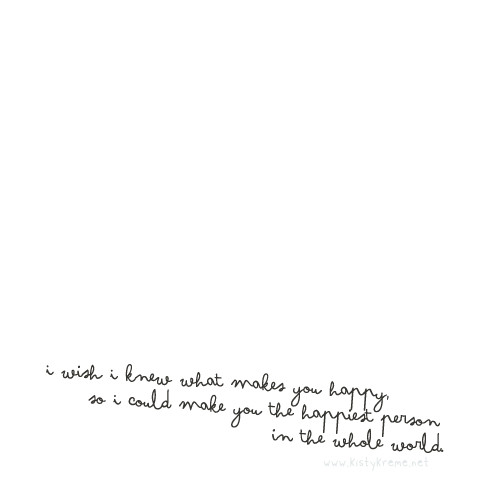 i wish i knew what makes you happy,
so i could make you the happiest person
in the whole world.
www.kistykreme.net